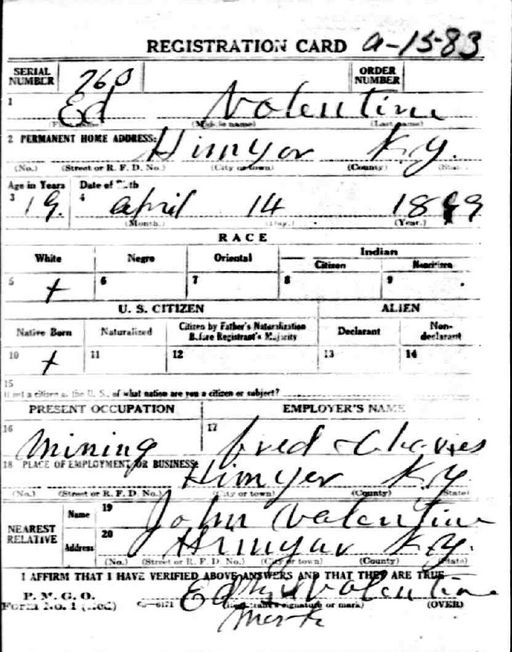 REGISTRATION CARD a-15-83
SERIAL NUMBER 260 ORDER NUMBER
1 Ed Valentine
(Middle name) (Last name)
2 PERMANENT HOME ADDRESS: Himyar Ky.
(No.) (Street or R. F. D. No.) (City or town) (County) (State)
Age in Years Date of Birth
3 19. 4 April 14 1899
(Month.) (Day.) (Year.)
RACE
White Negro Oriental Indian
Citizen Noncitizen
5 + 6 7 8 9
U. S. CITIZEN ALIEN
Native Born Naturalized Citizen by Father's Naturalization Before Registrant's Majority Declarant Non-declarant
10 + 11 12 13 14
15
If not a citizen of the U. S., of what nation are you a citizen or subject?
PRESENT OCCUPATION EMPLOYER'S NAME
16 Mining 17 Fred
18 PLACE OF EMPLOYMENT OR BUSINESS: Himyar Ky
(No.) (Street or R. F. D. No.) (City or town) (County) (State)
NEAREST RELATIVE Name 19 John Valentine
Address 20 Himyar Ky.
(No.) (Street or R. F. D. No.) (City or town) (County) (State)
I AFFIRM THAT I HAVE VERIFIED ABOVE ANSWERS AND THAT THEY ARE TRUE
P. M. G. O.
Form No. 1 (Red) C—6171 Ed his x Valentine
(Registrant's signature or mark) (OVER)
mark